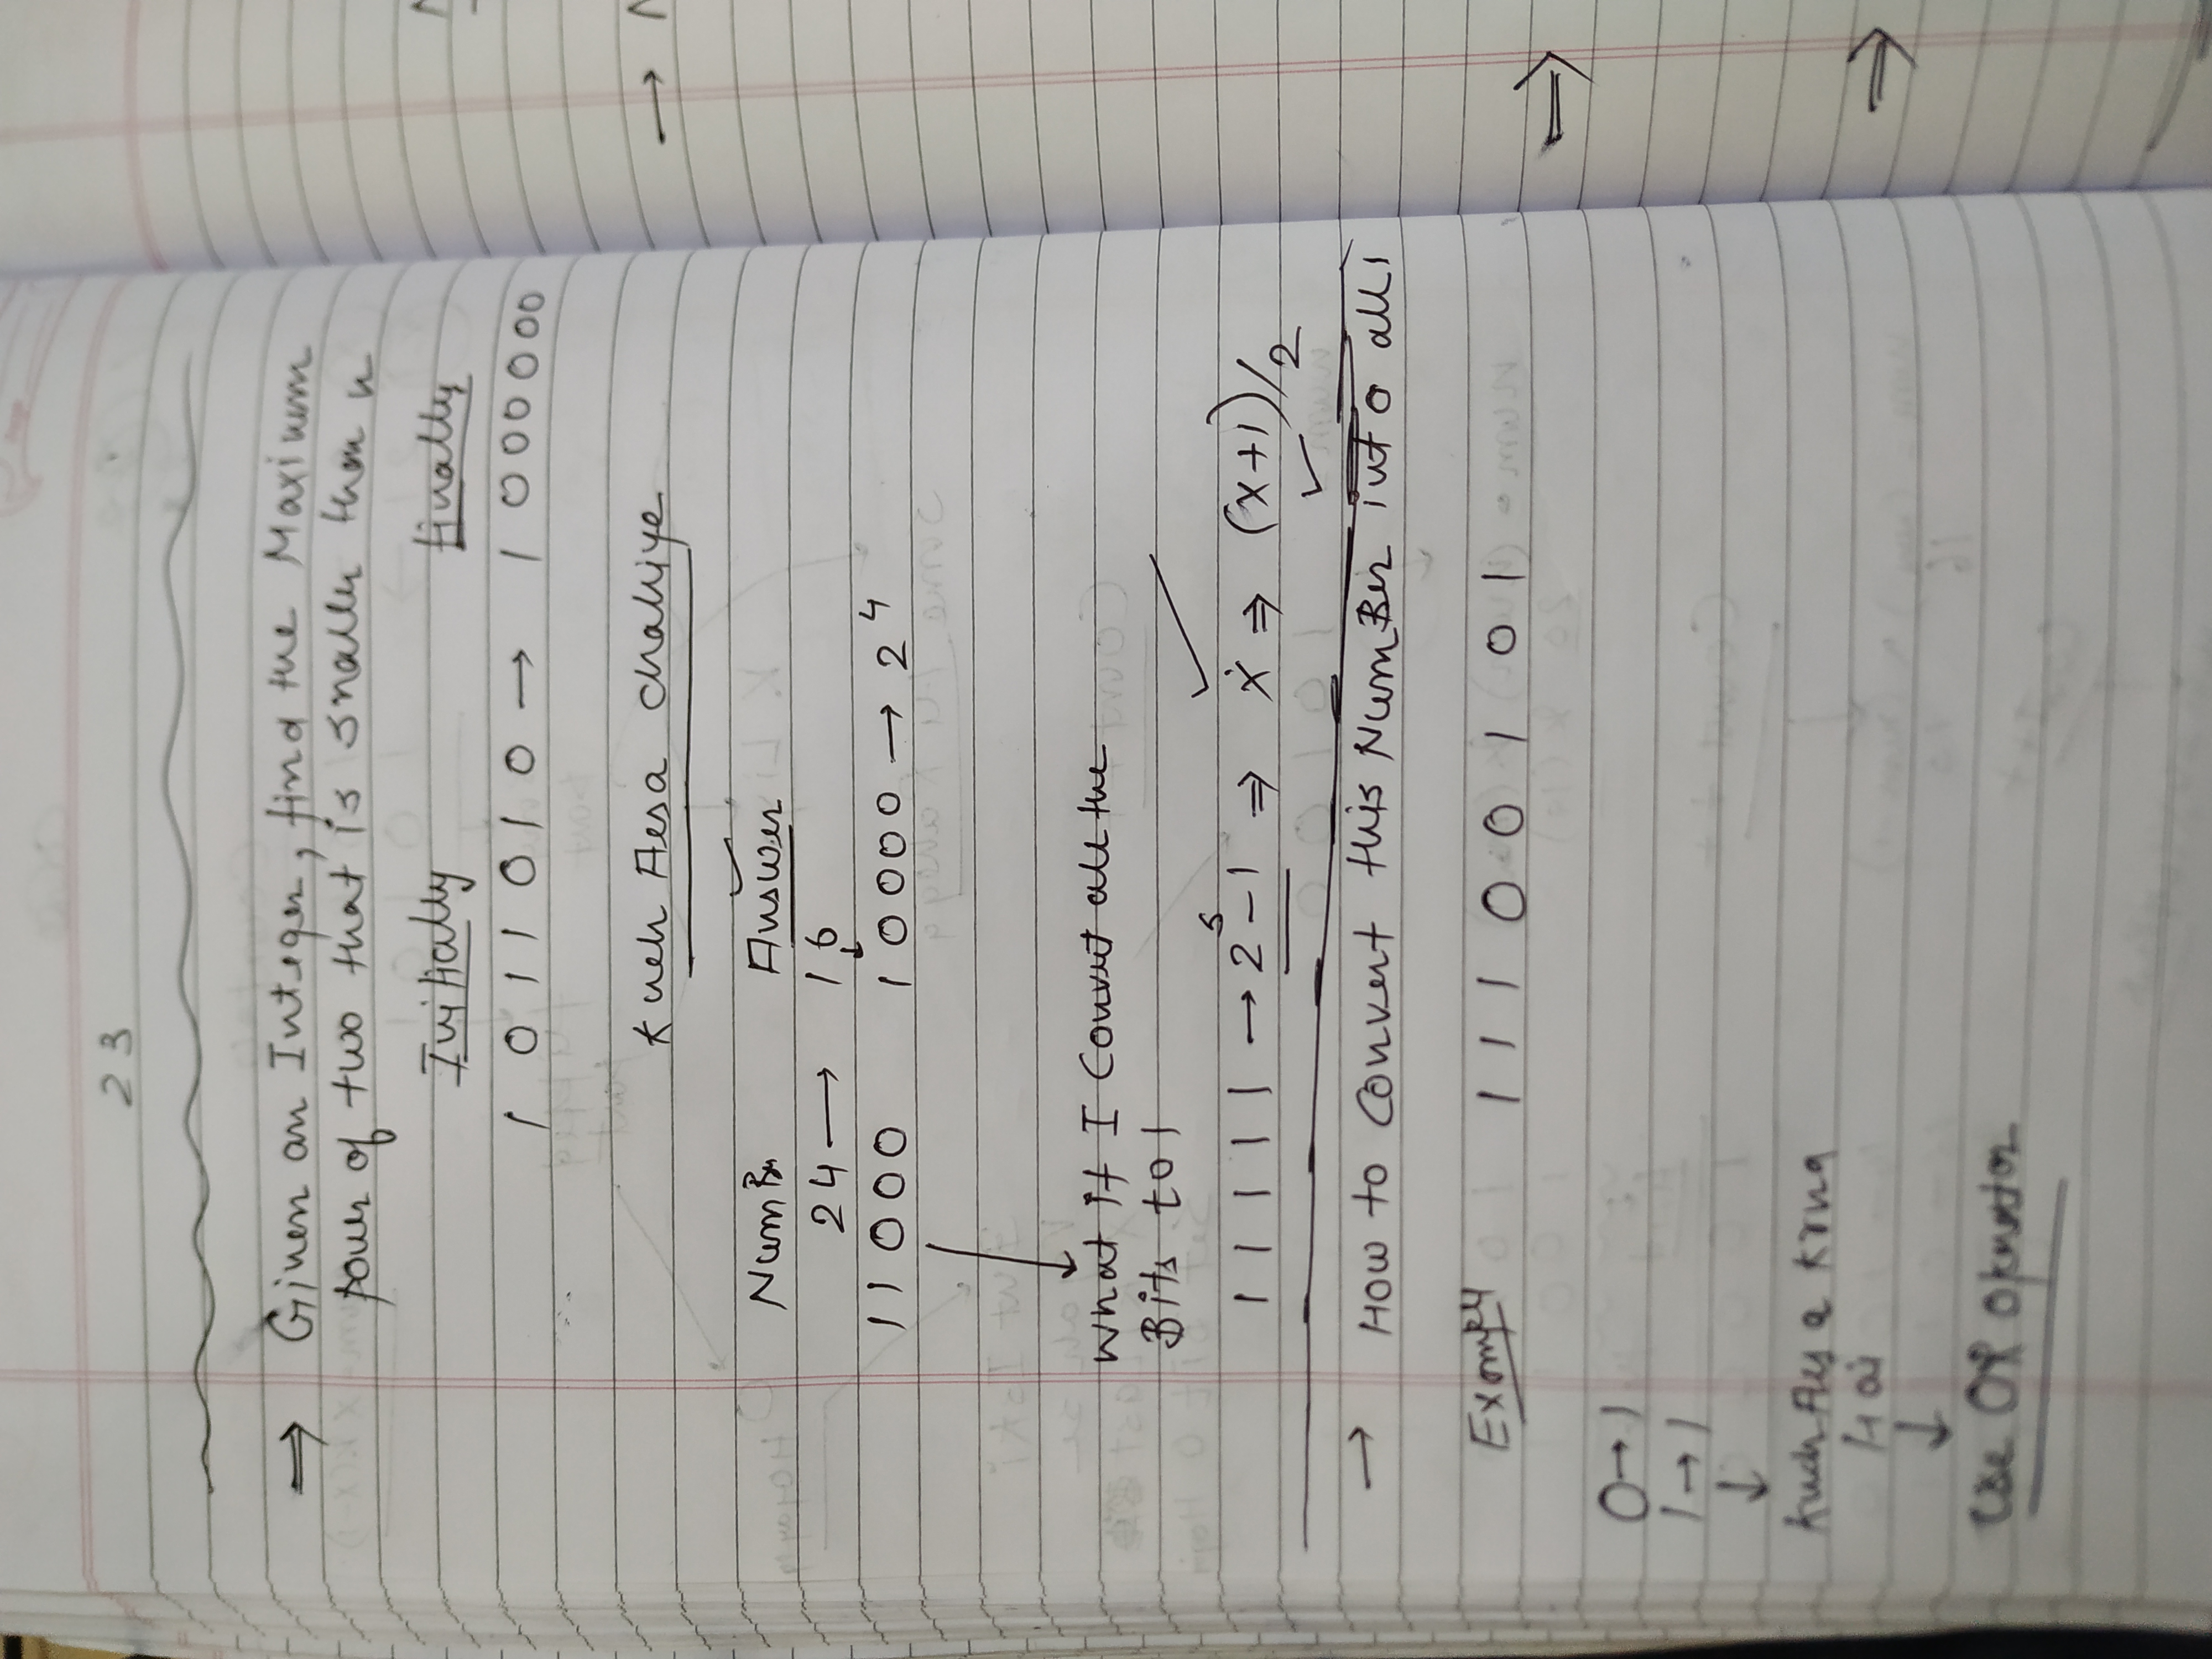 23
⇒ Given an Integer, find the Maximum
power of two that is smaller than n
Initially Finally
1 0 1 1 0 1 0 → 1 0 0 0 0 0 0
Kuch Aesa chahiye
Number Answer
24 → 16
↓
1 1 0 0 0 1 0 0 0 0 → 2⁴
↓
What if I Convert all the
Bits to 1
1 1 1 1 1 → 2⁵-1 ⇒ x ⇒ (x+1)/2
→ How to Convert this Number into all 1
Example 1 1 1 0 0 1 0 1
0→1
1→1
↓
Kuch Aesa Krna
Hai
↓
Use OR operator